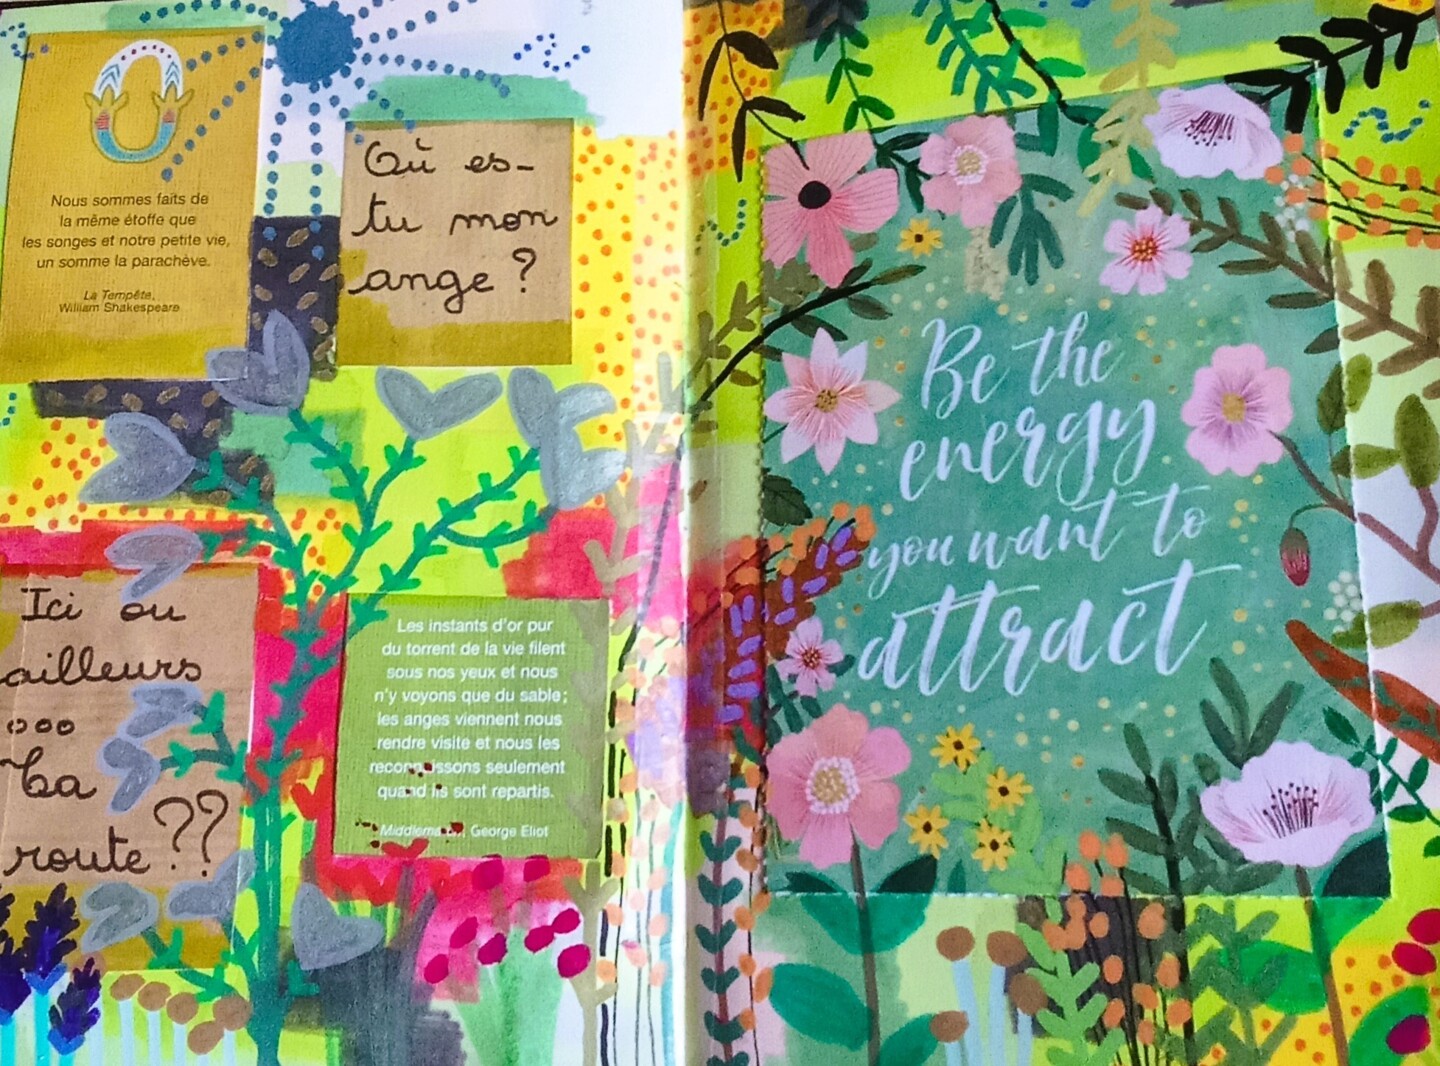 Nous sommes faits de
la même étoffe que
les songes et notre petite vie,
un somme la parachève.
La Tempête,
William Shakespeare
Où es-
tu mon
ange ?
Ici ou
ailleurs
ooo
La
route ??
Les instants d'or pur
du torrent de la vie filent
sous nos yeux et nous
n'y voyons que du sable;
les anges viennent nous
rendre visite et nous les
reconnaissons seulement
quand ils sont repartis.
George Eliot
Be the
energy
you want to
attract